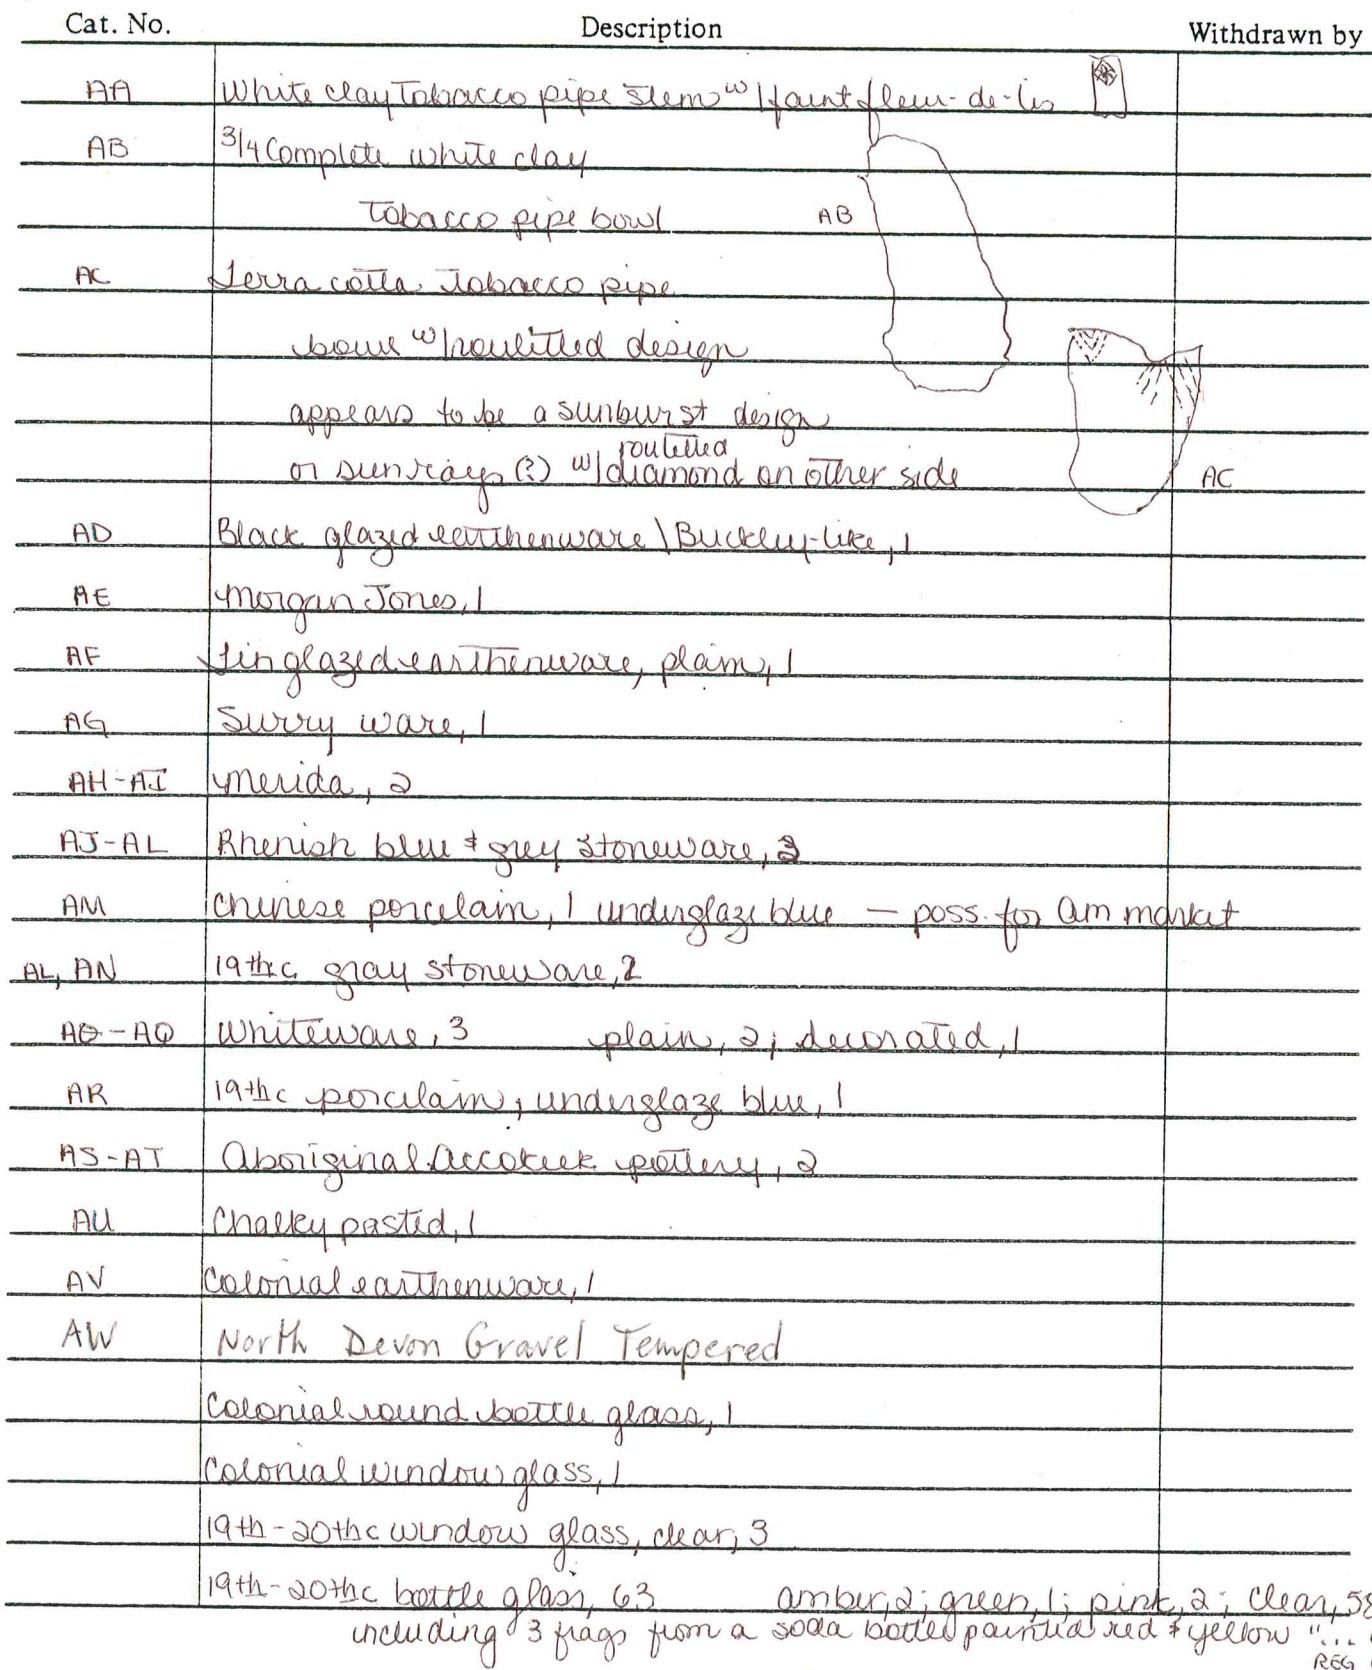 Cat. No. Description Withdrawn by
AA White clay Tobacco pipe stem w/ faint fleur-de-lis
AB 3/4 Complete white clay
Tobacco pipe bowl AB
AC Terra cotta Tobacco pipe
bowl w/ roulitted design
appears to be a sunburst design
routetted
or sun rays (?) w/ diamond on other side AC
AD Black glazed earthenware \ Buckley-like, 1
AE Morgan Jones, 1
AF Tin glazed earthenware, plain, 1
AG Surry ware, 1
AH-AI Merida, 2
AJ-AL Rhenish blue & grey stoneware,
AM Chinese porcelain, 1 underglaze blue — poss. for Am market
AL, AN 19th c gray stoneware, 2
AO-AQ Whiteware, 3 plain, 2; decorated, 1
AR 19th c porcelain, underglaze blue, 1
AS-AT Aboriginal Accokeek pottery, 2
AU Chalky pasted, 1
AV Colonial earthenware, 1
AW North Devon Gravel Tempered
Colonial round bottle glass, 1
Colonial window glass, 1
19th-20th c window glass, clear, 3
19th-20th c bottle glass, 63 amber, 2; green, 1; pink, 2; clear, 58
including 3 frags from a soda bottle painted red & yellow "...
REG